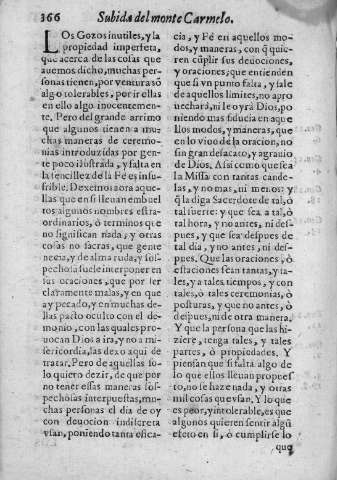 366 Subida del monte Carmelo.
LOs Gozos inutiles, y la
propiedad imperfeta,
que acerca de las cosas que
auemos dicho, muchas per-
sonas tienen, por ventura sō
algo tolerables, por ir ellas
en ello algo inocentemen-
te. Pero del grande arrimo
que algunos tienen a mu-
chas maneras de ceremo-
nias introduzidas por gen-
te poco ilustrada, y falta en
la sencillez de la Fè es insu-
frible. Dexemos aora aque-
llas que en si lleuan embuel
tos algunos nombres estra-
ordinarios, ò terminos que
no significan nada, y otras
cosas no sacras, que gente
necia, y de alma ruda, y sos-
pechosa suele interponer en
sus oraciones, que por ser
claramente malas, y en que
ay pecado, y en muchas de-
llas pacto oculto con el de-
monio, con las quales pro-
uocan Dios a ira, y no a mi-
sericordia, las dexo aqui de
tratar. Pero de aquellas so-
lo quiero dezir, de que por
no tener essas maneras sos-
pechosas interpuestas, mu-
chas personas el dia de oy
con deuocion indiscreta
vsan, poniendo tanta efica-
cia, y Fè en aquellos mo-
dos, y maneras, con q̃ quie-
ren cūplir sus deuociones,
y oraciones, que entienden
que si vn punto falta, y sale
de aquellos limites, no apro
uechará, ni le oyrá Dios, po
niendo mas fiducia en aque
llos modos, y maneras, que
en lo viuo de la oracion, no
sin gran desacato, y agrauio
de Dios. Assi como que sea
la Missa con tantas cande-
las, y no mas, ni menos: y
q̃ la diga Sacerdote de tal, ò
tal suerte: y que sea a tal, ò
tal hora, y no antes, ni des-
pues, y que sea despues de
tal dia, y no antes, ni des-
pues. Que las oraciones, ò
estaciones sean tantas, y ta-
les, y a tales tiempos, y con
tales, ò tales ceremonias, ò
posturas, y que no antes, ò
despues, ni de otra manera.
Y que la persona que las hi-
ziere, tenga tales, y tales
partes, ò propiedades. Y
piensan que si falta algo de
lo que ellos lleuan propues
to, no se haze nada, y otras
mil cosas que vsan. Y lo que
es peor, y intolerable, es que
algunos quieren sentir algū
efeto en si, ò cumplirse lo
que